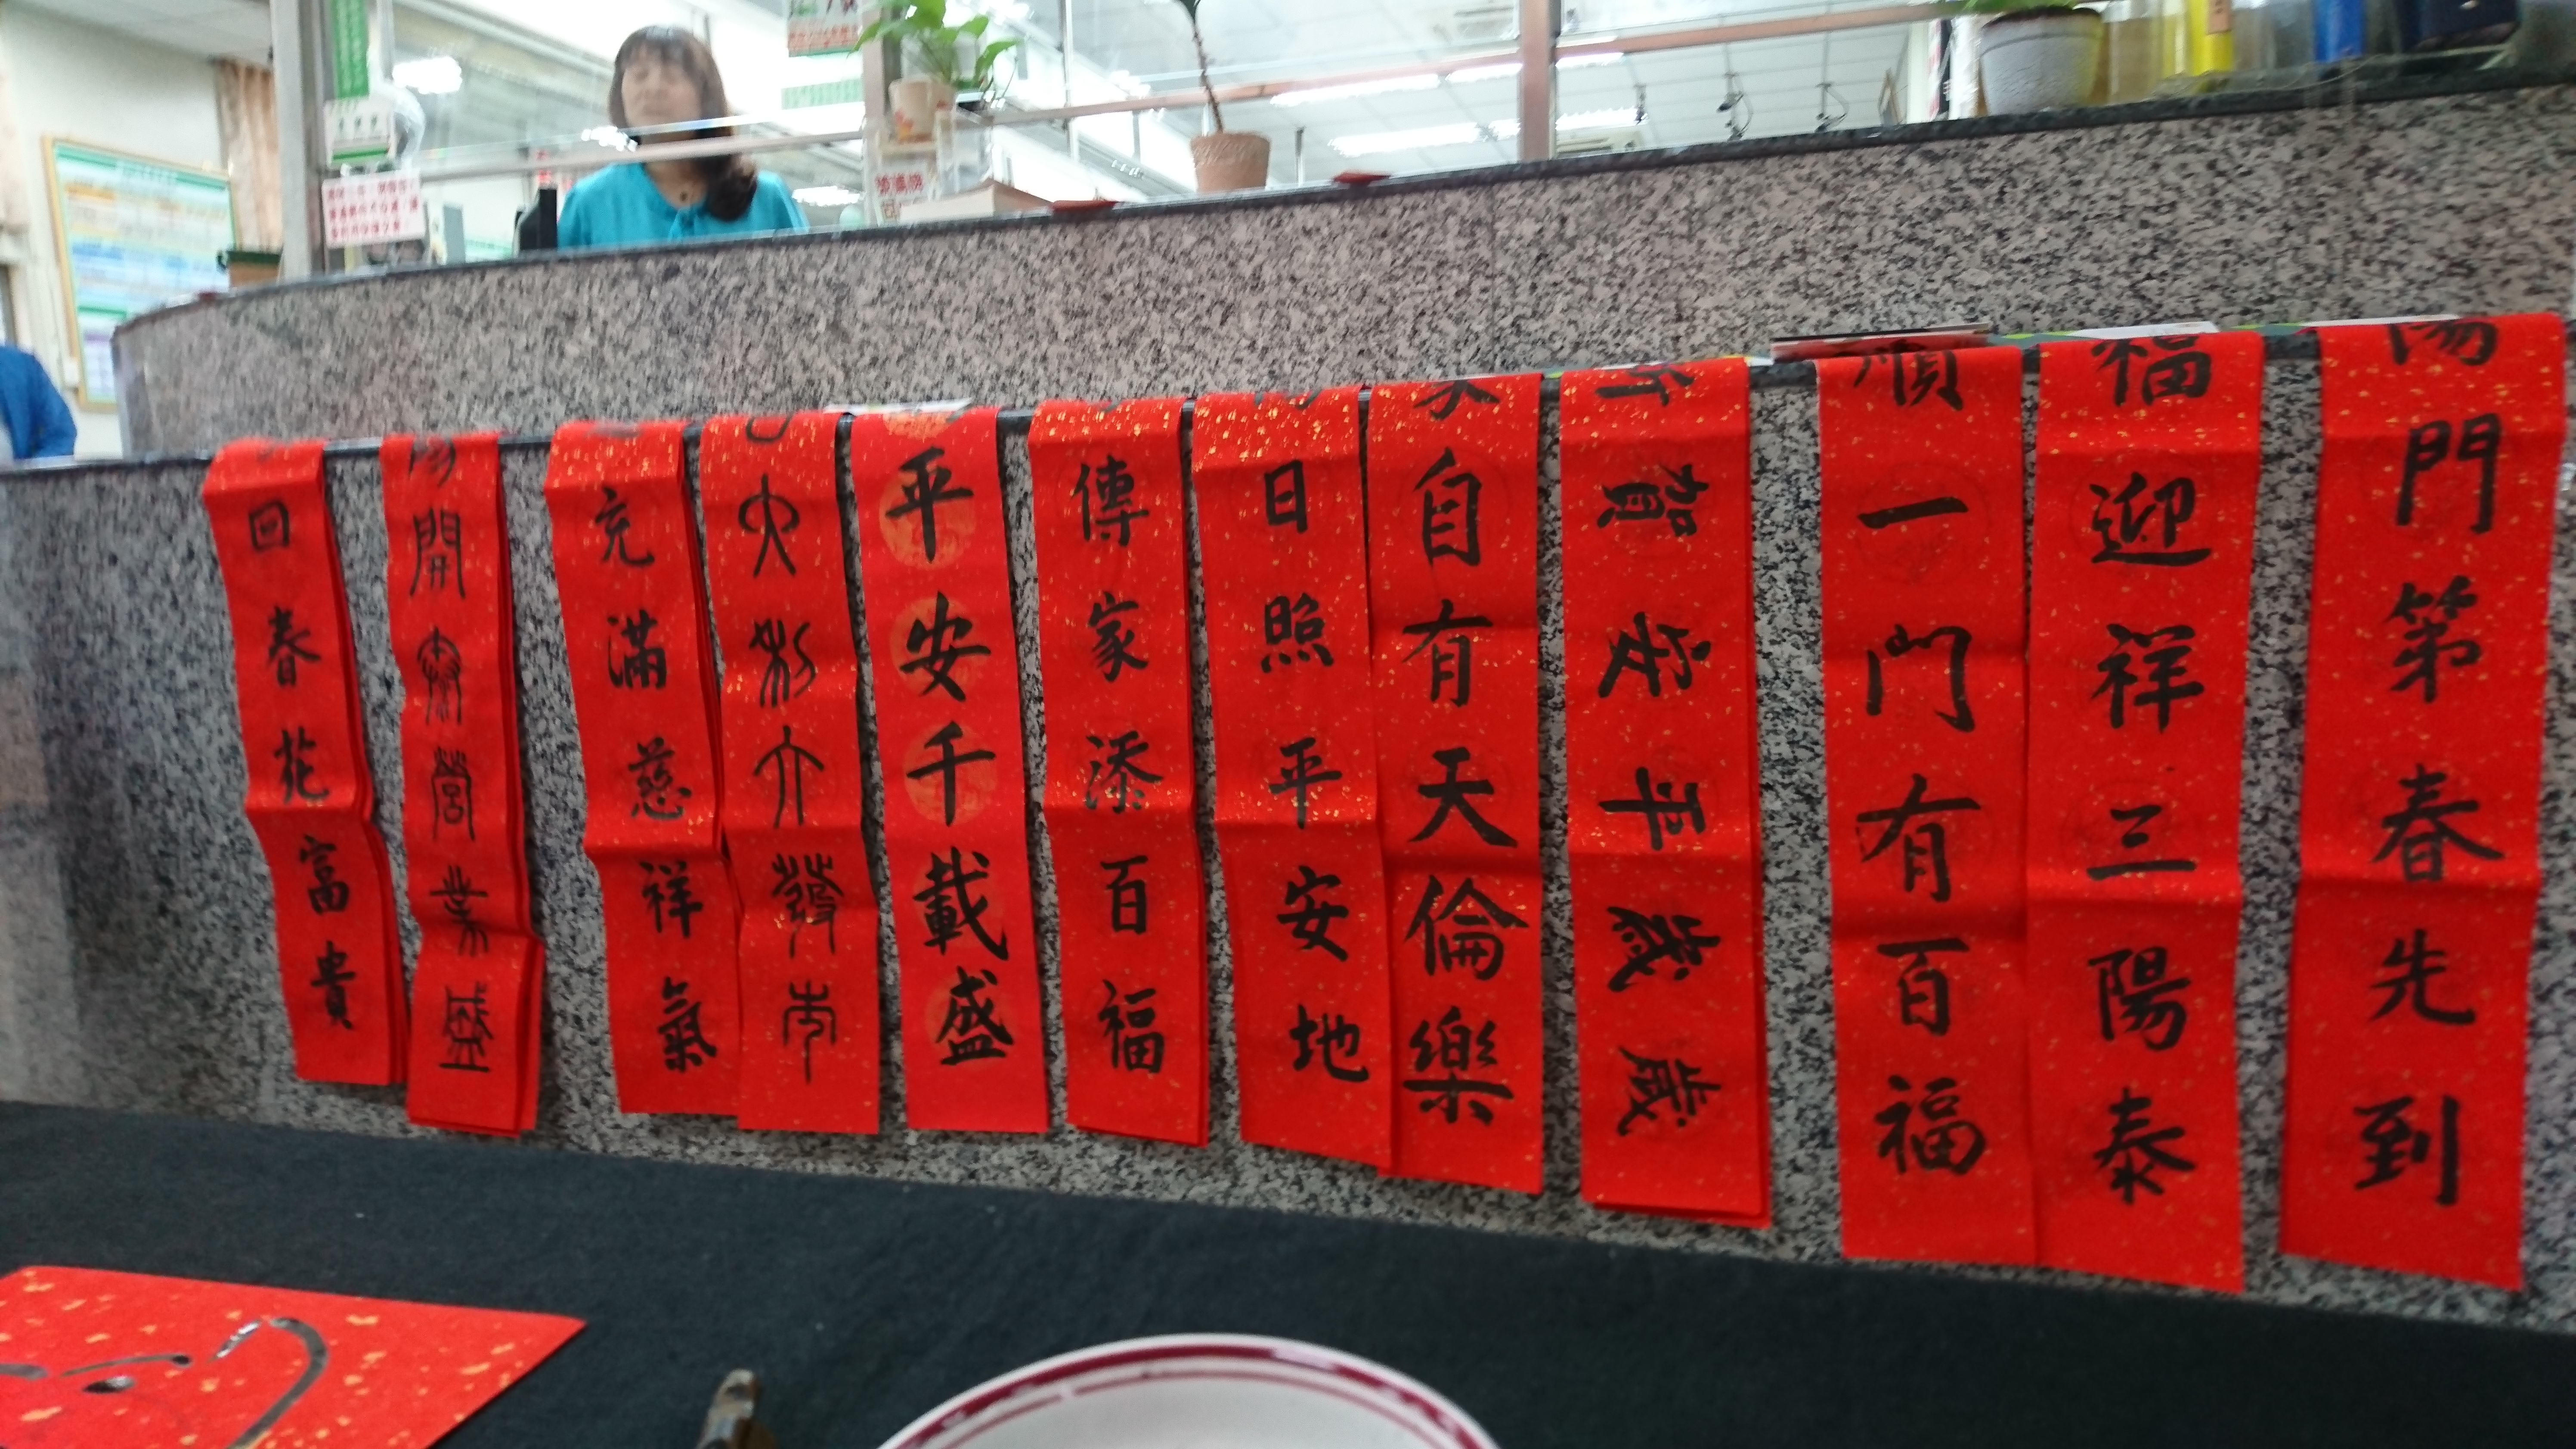 陽門第春先到
福迎祥三陽泰
順一門有百福
歲歲平安賀
家自有天倫樂
日照平安地
傳家添百福
平安千載盛
大利大發市
充滿慈祥氣
陽開泰營業盛
回春花富貴